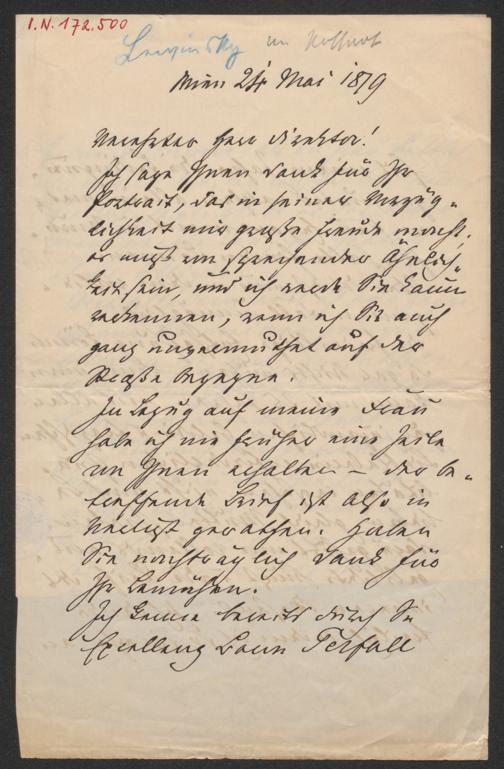 I.N. 172.500
Lewinsky an
Wien 24 Mai 1879
Verehrter Herr Direktor!
Ich sage Ihnen Dank für Ihr
Portrait, das in seiner Vorzüg-
lichkeit mir große Freude macht.
er muß von sprechender Ähnlich-
keit sein, und ich werde Sie kaum
verkennen, wenn ich Sie auch
ganz unvermuthet auf der
Straße begegne.
In Bezug auf meine Frau
habe ich nie früher eine Zeile
von Ihnen erhalten – der be-
treffende Brief ist also in
Verlust gerathen. Haben
Sie nachträglich Dank für
Ihr Bemühen.
Ich kenne bereits durch Se
Excellenz Baron